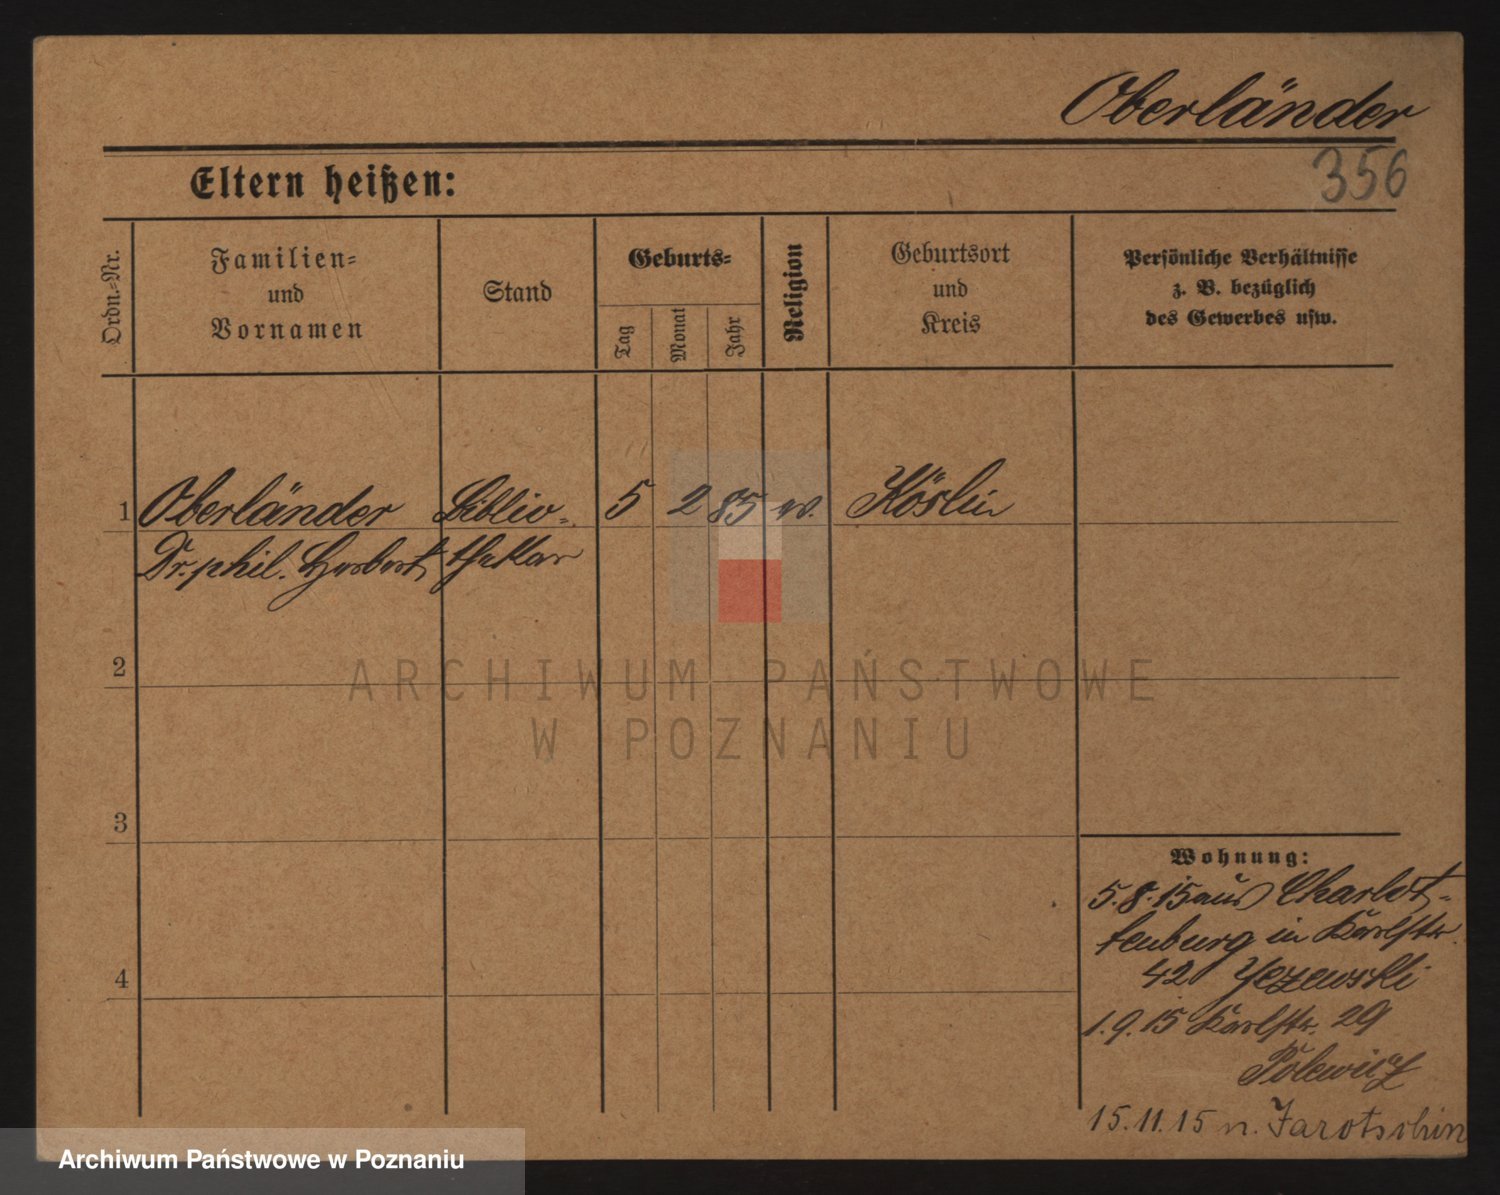 Oberländer
356
Eltern heißen:
Ordn.-Nr.
Familien-
und
Vornamen
Stand
Geburts-
Tag
Monat
Jahr
Religion
Geburtsort
und
Kreis
Persönliche Verhältnisse
z. B. bezüglich
des Gewerbes usw.
1 Oberländer Biblio- 5 2 85 ev. Köslin
Dr. phil. Herbert thekar
2
ARCHIWUM PAŃSTWOWE
W POZNANIU
3
Wohnung:
5.8.15 aus Charlot-
tenburg in Karlstr.
4
42 Jezewski
1.9.15 Karlstr. 29
15.11.15 n. Jarotschin
Archiwum Państwowe w Poznaniu